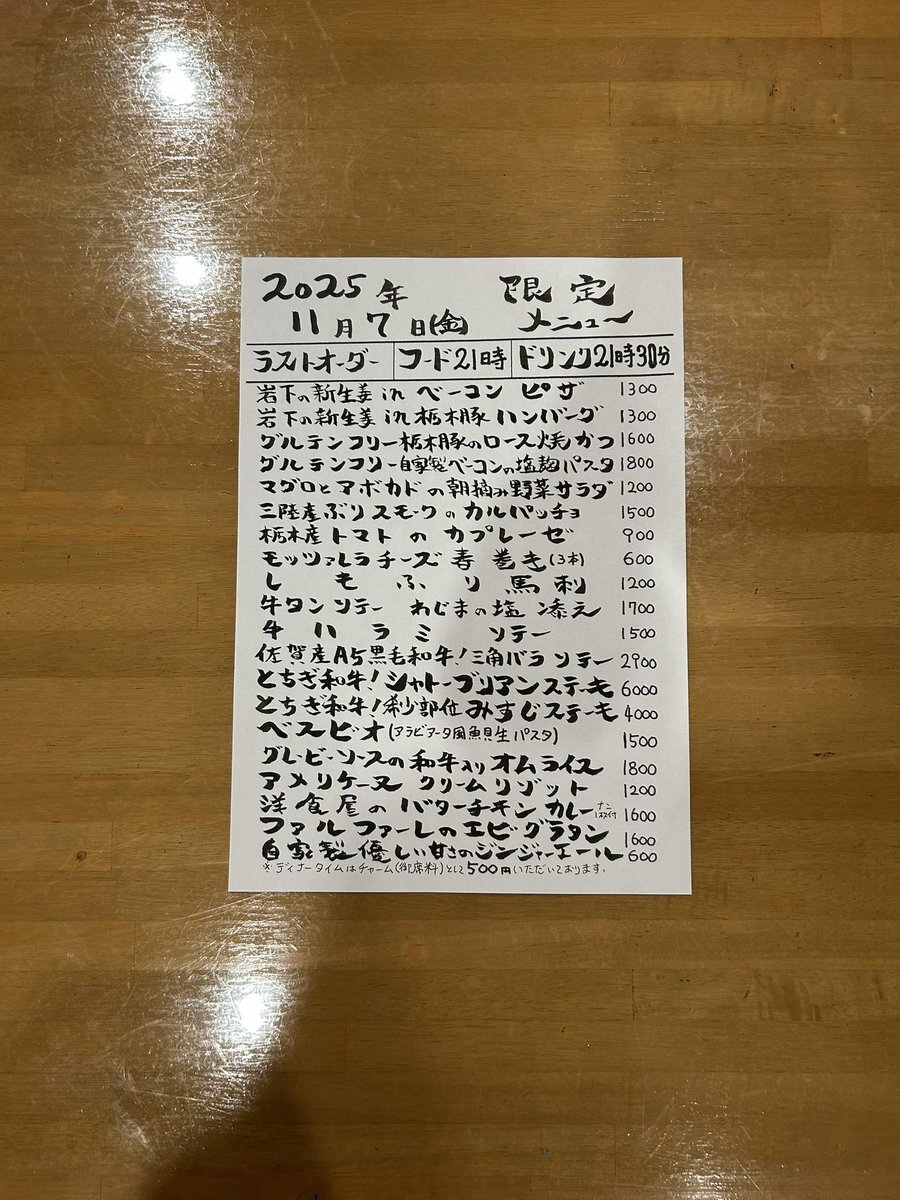 2025年 限定
11月7日(金) メニュー
ラストオーダー フード21時 ドリンク21時30分
岩下の新生姜 in ベーコン ピザ 1300
岩下の新生姜 in 栃木豚 ハンバーグ 1300
グルテンフリー栃木豚のロース焼かつ 1600
グルテンフリー自家製ベーコンの塩麹パスタ 1800
マグロとアボカドの朝摘み野菜サラダ 1200
三陸産ぶりスモークのカルパッチョ 1500
栃木産トマトのカプレーゼ 900
モッツァレラチーズ春巻き(3本) 600
しもふり馬刺 1200
牛タンソテー わじまの塩添え 1700
牛ハラミソテー 1500
佐賀産A5黒毛和牛!三角バラソテー 2900
とちぎ和牛!シャトーブリアンステーキ 6000
とちぎ和牛!希少部位みすじステーキ 4000
ベスビオ(アラビアータ風魚貝生パスタ) 1500
グレービーソースの和牛入りオムライス 1800
アメリケーヌ クリームリゾット 1200
洋食屋のバターチキンカレー ナン1枚付 1600
ファルファーレのエビグラタン 1600
自家製優しい甘さのジンジャーエール 600
※ディナータイムはチャーム(御席料)として500円いただいております。